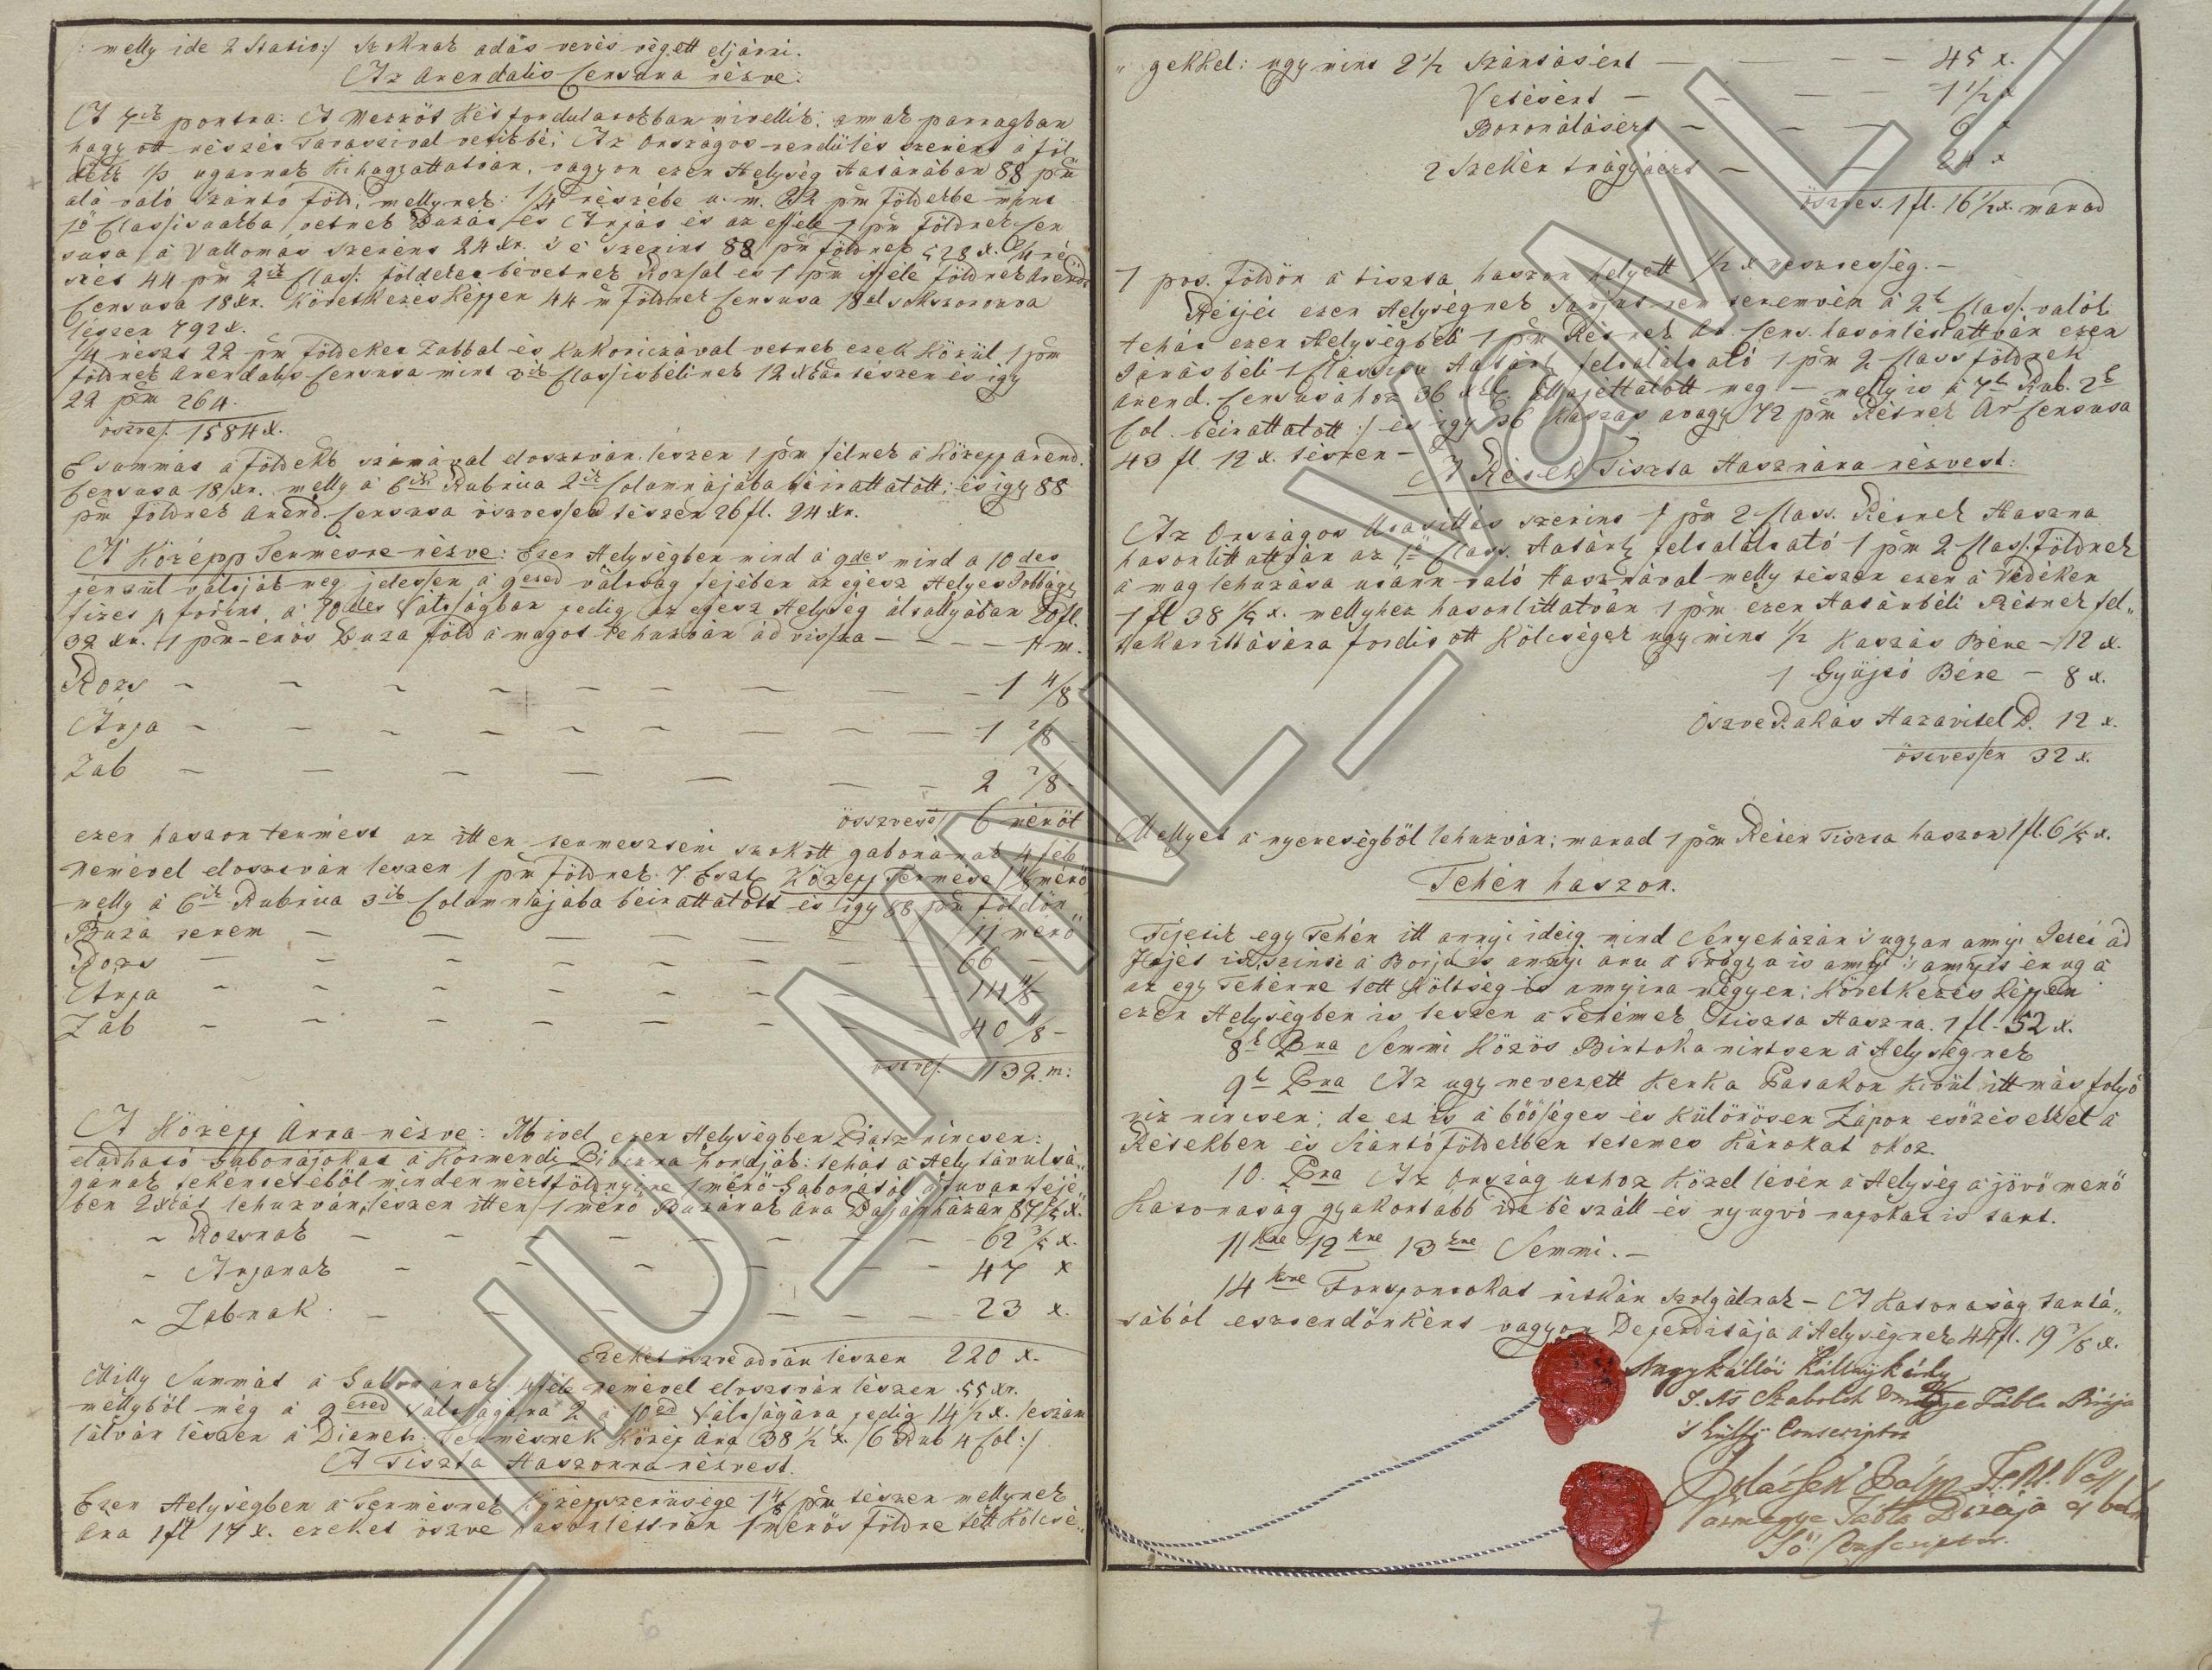 /: melly ide 2 Statio :/ szoktak adás vevés végett eljárni.
Az Arendalis Censura nézve:
A 7ik pontra: A Mezzöt Két fordulatokban mivellik: annak parragban
hagyott részét Tavaszival vetik bé; Az Országos rendülés szerént a föl
deik 1/3 ugarnak Kihagyattatván, vagyon ezen Helység Határában 88 pm
alá való Szántó föld, mellynek 1/4 részébe u. m. 22 pm földekbe mint
1ö Classisuakba vetnek Buzát és Árpát és az efféle 1 pm földnek Cen
susa a Vallomás szerént 24 xr. 's e szerint 88 pm földnek 528 x. 2/4 ré
szét 44 pm 2ik Class. földeket bévetnek Rozsal és 1 pm efféle földnek Arend.
Censusa 18 xr. Következés Képpen 44 m földnek Censusa 18 al sokszorozva
lészen 792 x.
1/4 részt 22 pm földeket Zabbal és Kukoriczával vetnek ezek Közül 1 pm
földnek Arendalis Censusa mint 3ik Classisbélinek 12 xban tészen és igy
22 pm 264.
öszves. 1584 x.
E summát a földek számával elosztván lészen 1 pm félnek a Közepp arend.
Censusa 18 xr. melly a 6ik Rubrica 2ik Columnájába béirattatott; és igy 88
pm földnek arend. Censusa öszvessen tészen 26 fl. 24 xr.
A Középp Termésre nézve: Ezen Helységben mind a 9des mind a 10des
pénzül váltják meg jelessen a 9ezed váltság fejében az egész Helyes Jobbágy
fizet 4 forint, a 10des Váltságban pedig az egész Helység általlyában 20 fl.
32 xr. 1 pm-erös Buza föld a magot kehuzván ád vissza — — — 1 m.
Rozs — — — — 1 4/8
Árpa — — — — 1 2/8
Zab — — — — 2 2/8
öszvessen 6 mérőt
ezen haszon termést az itten termeszteni szokott gabonának 4 féle
nemével elosztván leszen 1 pm földnek 7 Eszt. Közepp Termése 1 4/8 mérö
melly a 6ik Rubrica 3ik Columnájába béirattatott és igy 88 pm földön
Buza terem — — — 11 mérö
Rozs — — — 66
Árpa — — — 14 4/8
Zab — — — 40 4/8
öszves. 132 m:
A Közepp Árra nézve: Mivel ezen Helységben Piatz nincsen:
eladható Gabonájokat a Körmendi Piatzra hordják: tehát a Hely távulsá„
gának tekéntetéböl minden mértföldnyire 1 mérö Gabonától a fuvar fejé
ben 2 xtát lehuzván, leszen itten 1 mérö Buzának Ára Dajánházán 87 2/5 x.
„ Rozsnak — — — 62 3/5 x.
„ Árpának — — — 47 x
„ Zabnak — — — 23 x.
Ezeket öszve adván leszen 220 x.
Melly Summát a Gabonának 4 féle nemével elosztván lészen 55 xr.
mellyböl még a 9ezed váltságára 2 a 10ed Váltságára pedig 14 1/2 x. leszám
lálván lészen a Diamet: Termésnek Közép Ára 38 1/2 x. /6 Rub 4 Col:/
A tiszta Haszonra nézvest.
Ezen Helységben a Termésnek Középszerüsége 1 4/8 pm tészen mellynek
ára 1 fl 17 x. ezeket öszve hasonlittván 1 mérös földre tétt Kölcsé„
„ gekkel: ugy mint 2 1/2 Szántásért — — — 45 x.
Vetésért — — — 1 1/2 x
Boronálásért — — — 6 x
2 Szekér trágyáért — — 24 x
öszves. 1 fl. 16 1/2 x. marad
1 pos. földön a tiszta haszon helyett 1/2 x vesztesség. —
Réjei ezen Helységnek Sarjut nem teremvén a 2k Class. valók
tehát ezen Helységbéli 1 pm Rétnek Ar. Cens. hasonlittattván ezen
Járásbéli 1 Classisu Határb. feltalálható 1 pm 2 Class földnek
Arend. Censusához 36 xb. állapittatott meg — melly is a 7k Rub. 2k
Col. béirattatott :/ és igy 36 Kaszás avagy 72 pm Rétnek Ar Censusa
43 fl. 12 x. tészen —
A Rétek Tiszta Hasznára nézvest:
Az Országos Utasittás szerint 1 pm 2 Class. Rétnek Haszna
hasonlittattván az 1ö Class. Határb. feltalálható 1 pm 2 Class. földnek
a mag lehuzása utánn való Hasznával melly tészen ezen a Vidéken
1 fl 38 1/5 x. mellyhez hasonlittatván 1 pm ezen Határbéli Rétnek fel„
takarittására fordittott Költségek ugy mint 1/2 Kaszás Bére — 12 x.
1 Gyüjtö Bére — 8 x.
Öszve Rakás Hazavitel D. 12 x.
öszvessen 32 x.
Mellyet a nyereségböl lehuzván; marad 1 pm Réten Tiszta haszon 1 fl. 6 1/5 x.
Tehén haszon.
Fejetik egy Tehén itt annyi ideig mind Senyeházán 's ugyan annyi Tejet ád
Tejet is, szinte a Borju is annyi áru a Trágya is annyi 's annyit ér ug a
az egy Tehénre tett Költség is annyira mégyen; Következés Képpen
ezen Helységben is leszen a Tehénnek tiszta Haszna 1 fl. 52 x.
8k Pra Semmi Közös Birtoka nintsen a Helységnek
9k Pra Az ugy nevezett Kerka Patakon Kivül itt más folyó
viz nincsen; de ez is a böösséges és Külömösen Zápor esözésekkel a
Rétekben és Szántó földekben tetemes Károkat okoz.
10. Pra Az Ország uthoz Közel lévén a Helység a jövö menö
Katonaság gyakortabb ide bé száll és nyugvó napokat is tart.
11kre 12kre 13kre Semmi. —
14kre Forspontokat ritkán szolgálnak — A Katonaság tartá„
sából esztendönként vagyon Deperditája a Helységnek 44 fl. 19 3/8 x.
Nagykállói Kállay Károly
T. Ns Szabolch Vármegye Tábla Birája
's Külsö Conscriptor
Vármegye Tábla Birája és bel
sö Conscriptor.
6
7
HU_MNL_VaML_